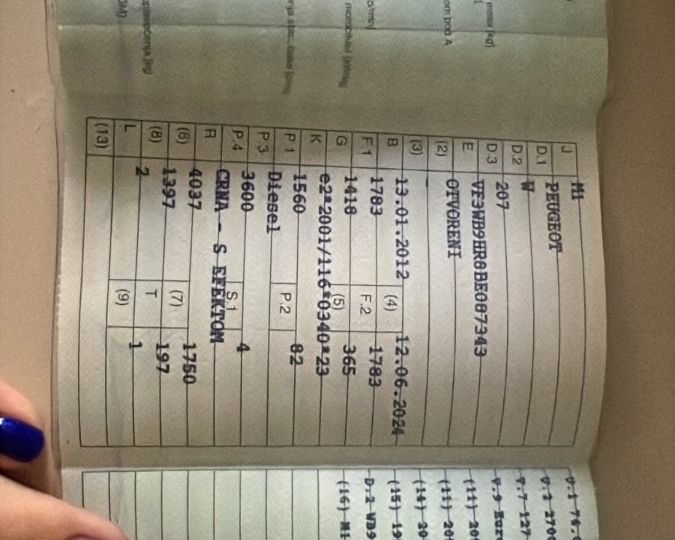 J M1
D.1 PEUGEOT
D.2 W
D.3 207
E VF3WB9HR8BE087343
(2) OTVORENI
(3) -
B 13.01.2012 (4) 12.06.2024
F.1 1783 F.2 1783
G 1418 (5) 365
K e2*2001/116*0340*23
P.1 1560 P.2 82
P.3 Diesel
P.4 3600 S.1 4
R CRNA - S EFEKTOM
(6) 4037 (7) 1750
(8) 1397 T 197
L 2 (9) 1
(13)
V.7 127
V.9 Euro
(11) 20
(11) 20
(14) 20
(15) 19
D.2 WB9
(16) M1